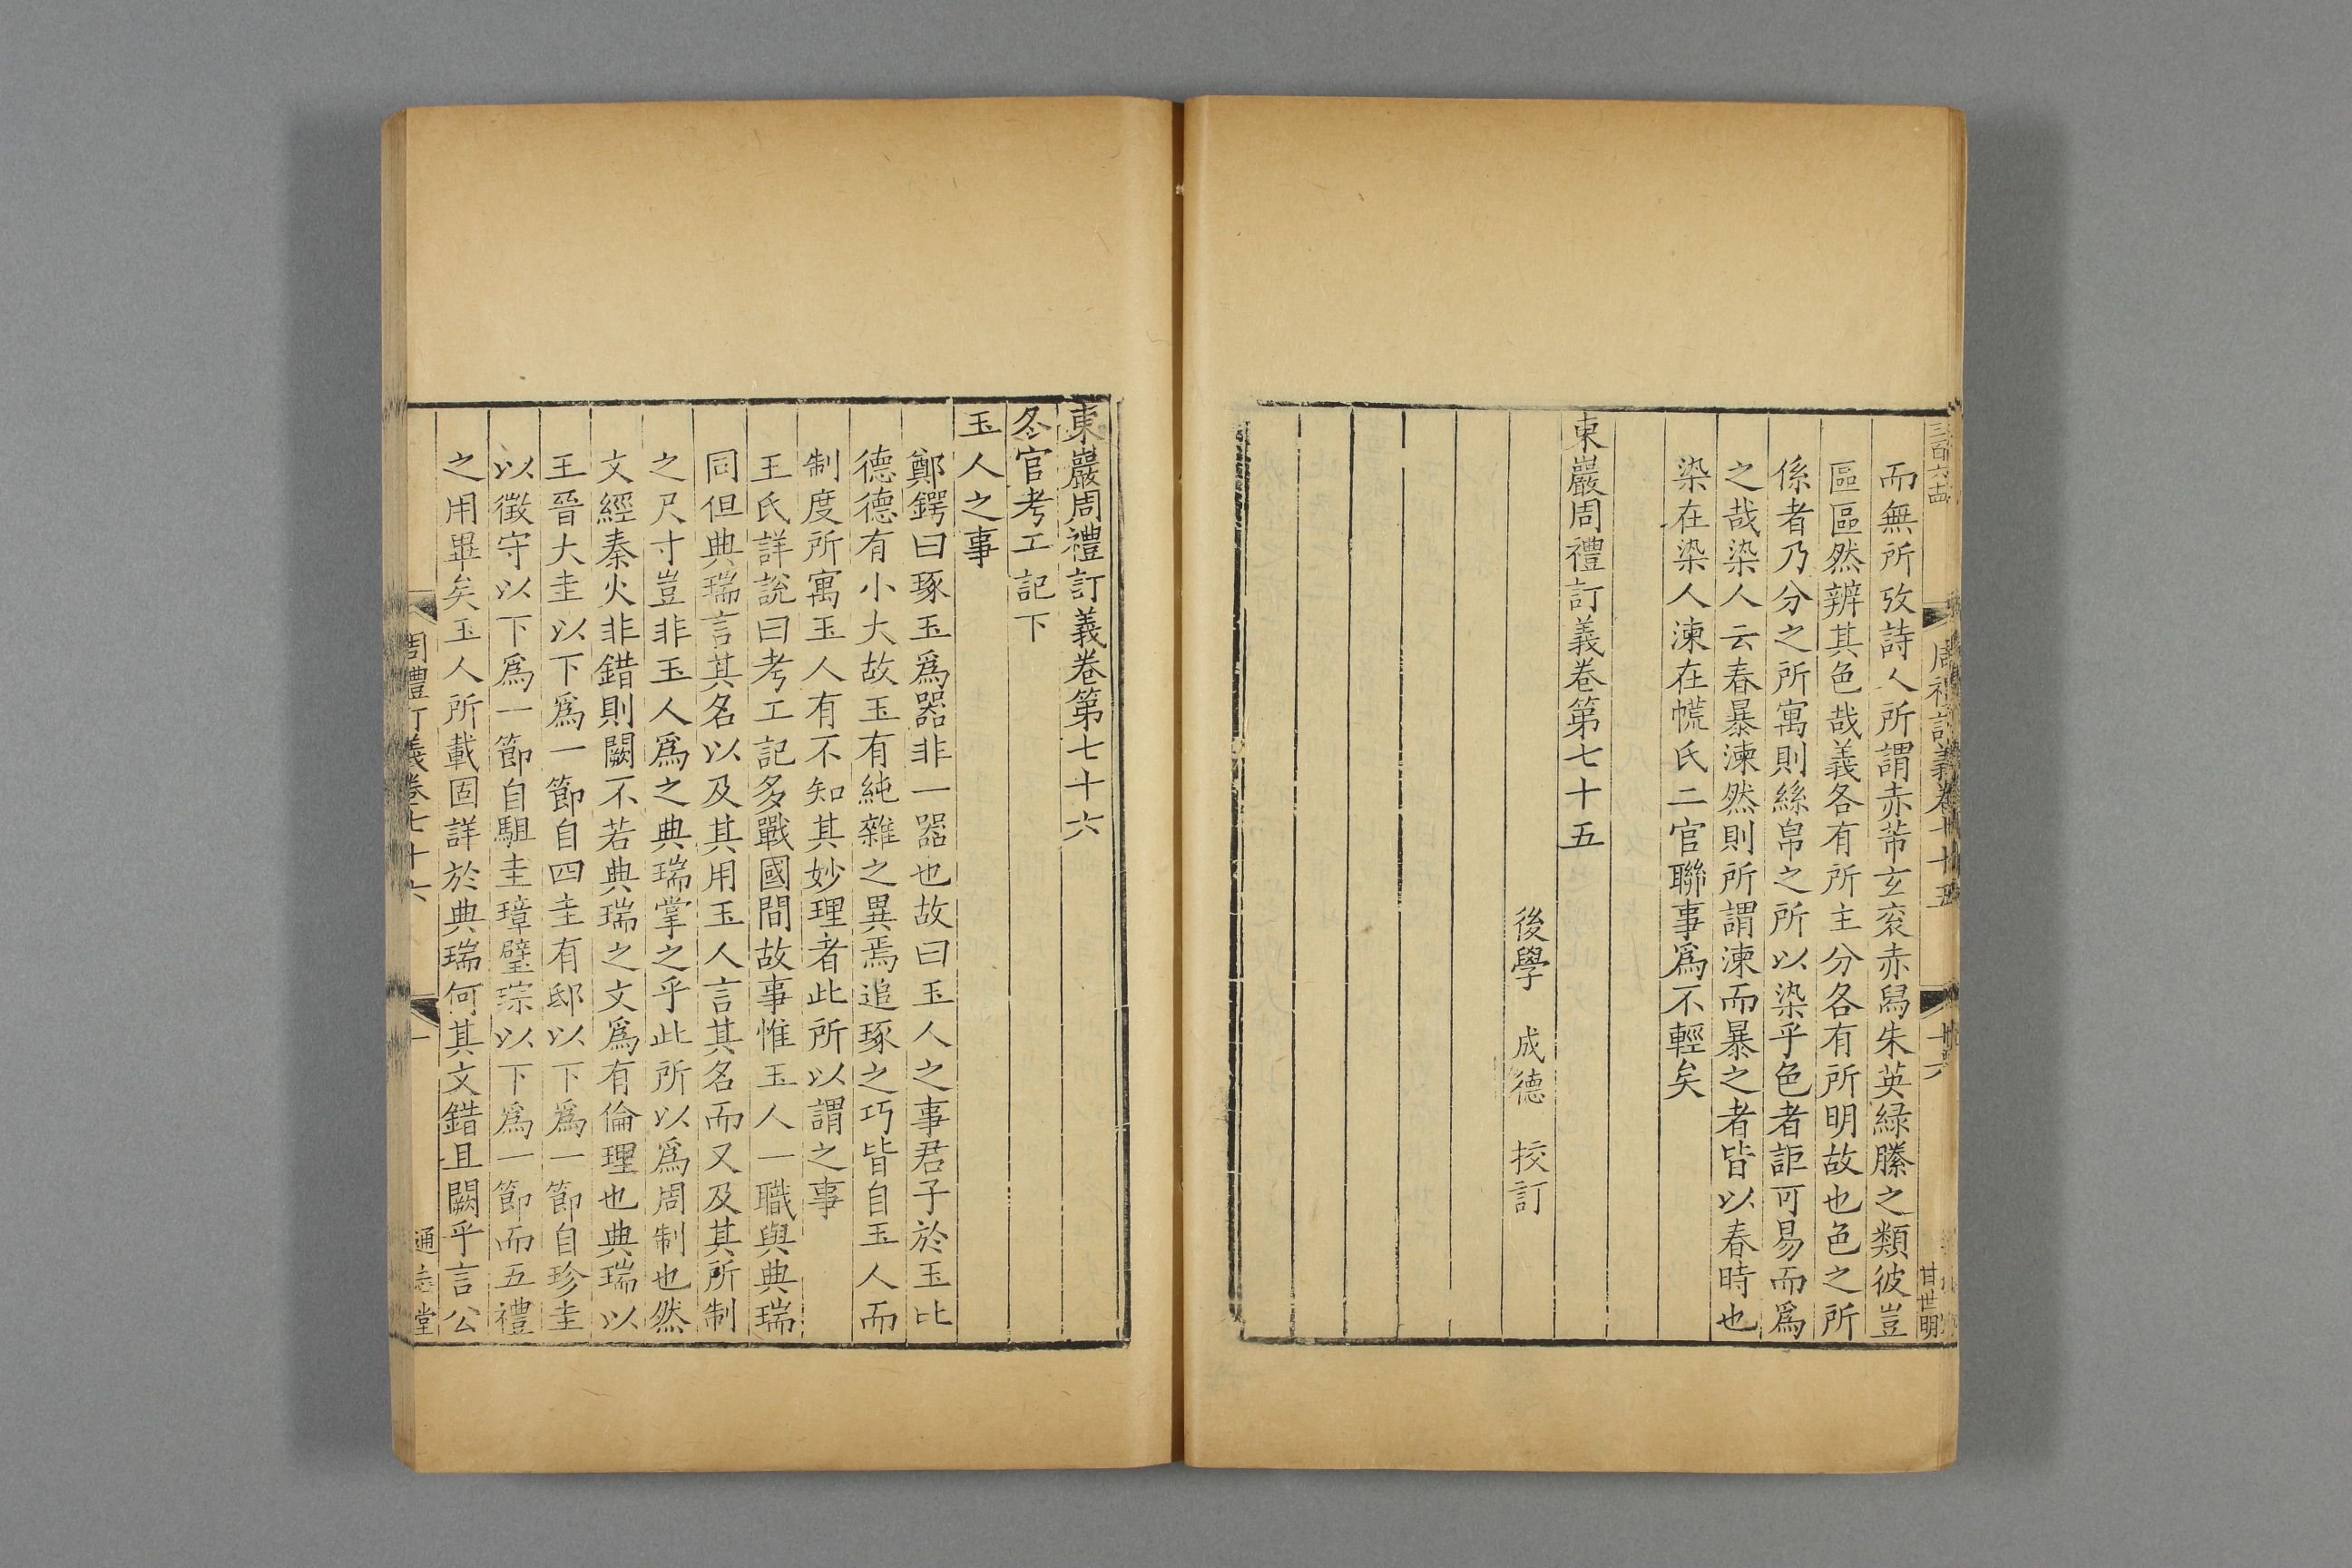 而無所攷詩人所謂赤芾玄衮赤舄朱英緑縢之類彼豈
區區然辨其色哉義各有所主分各有所明故也色之所
係者乃分之所寓則絲帛之所以染乎色者詎可易而爲
之哉染人云春暴湅然則所謂湅而暴之者皆以春時也
染在染人湅在㡛氏二官聯事爲不輕矣
東巖周禮訂義卷第七十五
後學 成德 挍訂
甘世明
東巖周禮訂義卷第七十六
冬官考工記下
玉人之事
鄭鍔曰琢玉爲器非一器也故曰玉人之事君子於玉比
德德有小大故玉有純雜之異焉追琢之巧皆自玉人而
制度所寓玉人有不知其妙理者此所以謂之事
王氏詳說曰考工記多戰國間故事惟玉人一職與典瑞
同但典瑞言其名以及其用玉人言其名而又及其所制
之尺寸豈非玉人爲之典瑞掌之乎此所以爲周制也然
文經秦火非錯則闕不若典瑞之文爲有倫理也典瑞以
王晉大圭以下爲一節自四圭有邸以下爲一節自珍圭
以徵守以下爲一節自駔圭璋璧琮以下爲一節而五禮
之用畢矣玉人所載固詳於典瑞何其文錯且闕乎言公
周禮訂義卷七十六
一
通志堂